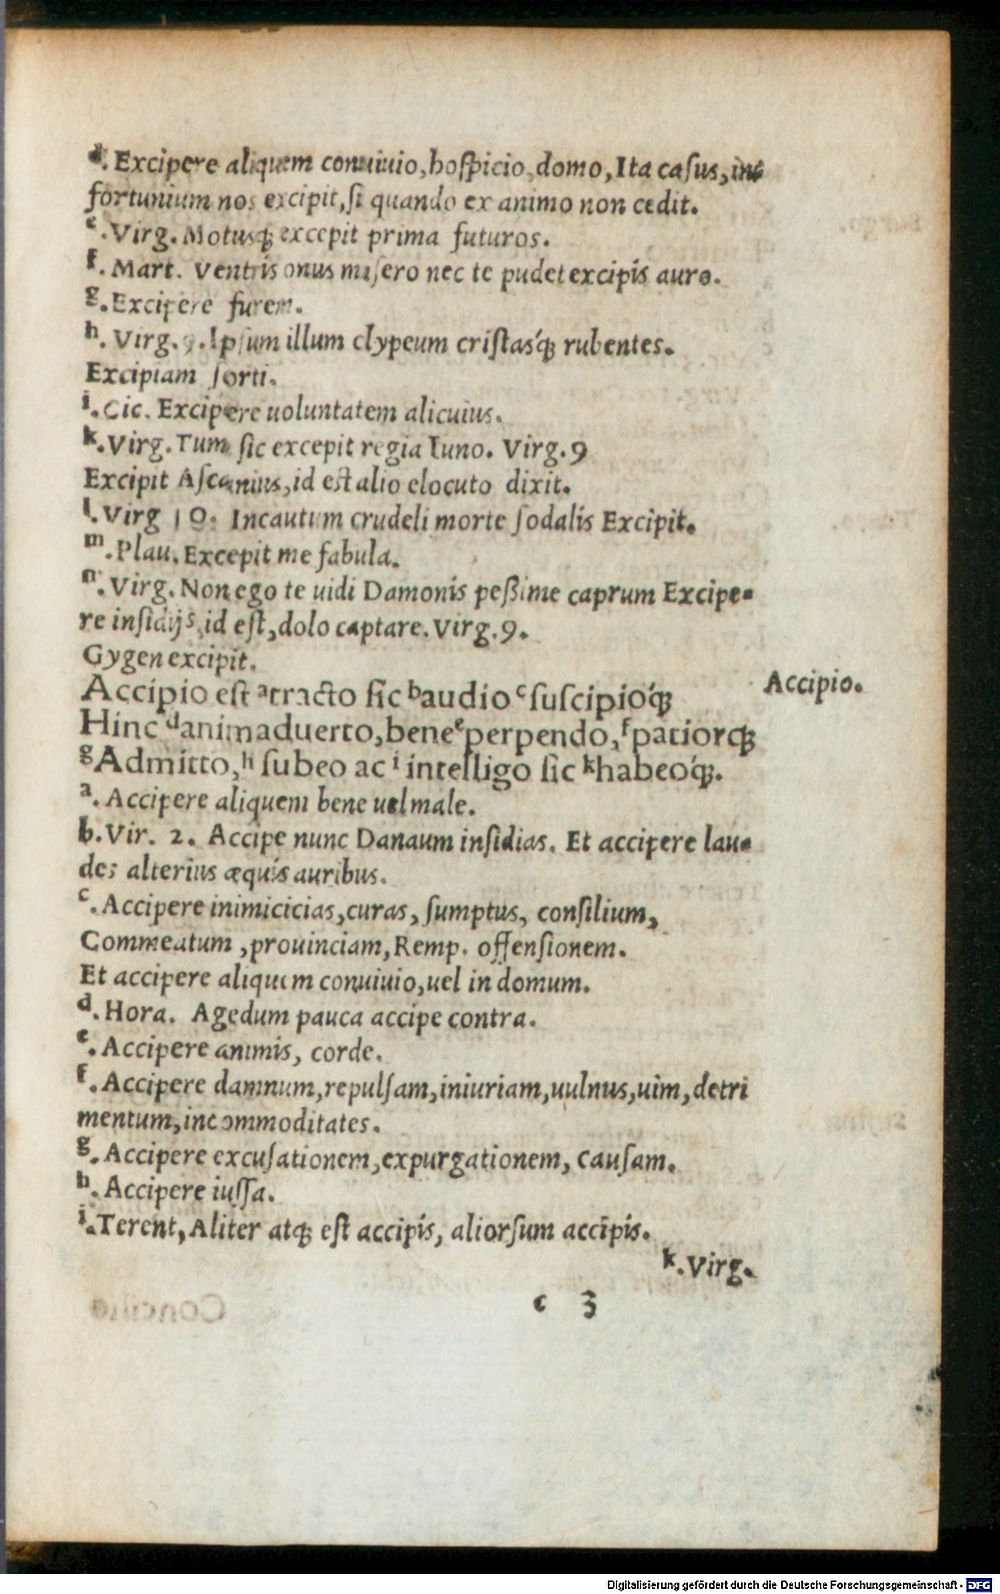 d. Excipere aliquem conuiuio, hospicio, domo, Ita casus, in=
fortunium nos excipit, si quando ex animo non cedit.
e. Virg. Motusq; excepit prima futuros.
f. Mart. Ventris onus misero nec te pudet excipis auro.
g. Excipere furem.
h. Virg. 9. Ipsum illum clypeum cristasq́; rubentes.
Excipiam sorti.
i. Cic. Excipere uoluntatem alicuius.
k. Virg. Tum sic excepit regia Iuno. Virg. 9
Excipit Ascanius, id est alio elocuto dixit.
l. Virg 10. Incautum crudeli morte sodalis Excipit.
m. Plau. Excepit me fabula.
n. Virg. Non ego te uidi Damonis peßime caprum Excipe=
re insidijs, id est, dolo captare. Virg. 9.
Gygen excipit.
Accipio est ᵃtracto sic ᵇaudio ᶜsuscipioq́;
Accipio.
Hinc ᵈanimaduerto, bene ᵉperpendo, ᶠpatiorq́;
ᵍAdmitto, ʰsubeo ac ⁱintelligo sic ᵏhabeoq́;.
a. Accipere aliquem bene uel male.
b. Vir. 2. Accipe nunc Danaum insidias. Et accipere lau=
des alterius æquis auribus.
c. Accipere inimicicias, curas, sumptus, consilium,
Commeatum, prouinciam, Remp. offensionem.
Et accipere aliquem conuiuio, uel in domum.
d. Hora. Agedum pauca accipe contra.
e. Accipere animis, corde.
f. Accipere damnum, repulsam, iniuriam, uulnus, uim, detri
mentum, incommoditates.
g. Accipere excusationem, expurgationem, causam.
h. Accipere iussa.
i. Terent, Aliter atq; est accipis, aliorsum accipis.
k. Virg.
c 3
Digitalisierung gefördert durch die Deutsche Forschungsgemeinschaft - DFG